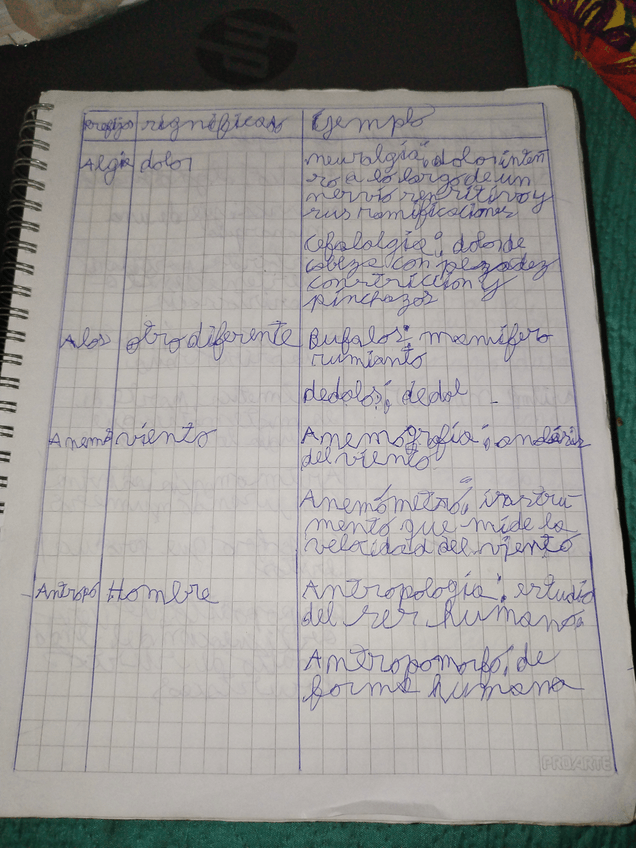 hp
Prefijos significado Ejemplo
Algia dolor neuralgia: dolor inten
so a lo largo de un
nervio sensitivo y
sus ramificaciones
Cefalalgia: dolor de
cabeza con pezadez
constriccion y
pinchazos
Alos otro diferente Bufalos: mamifero
rumianto
dedalos: dedal
Anemo viento Anemografía:
del viento
Anemómetro: instru
mento que mide la
velocidad del viento
Antropo Hombre Antropología: estudio
del ser humano
Antropomorfo: de
forma humana
PROARTE